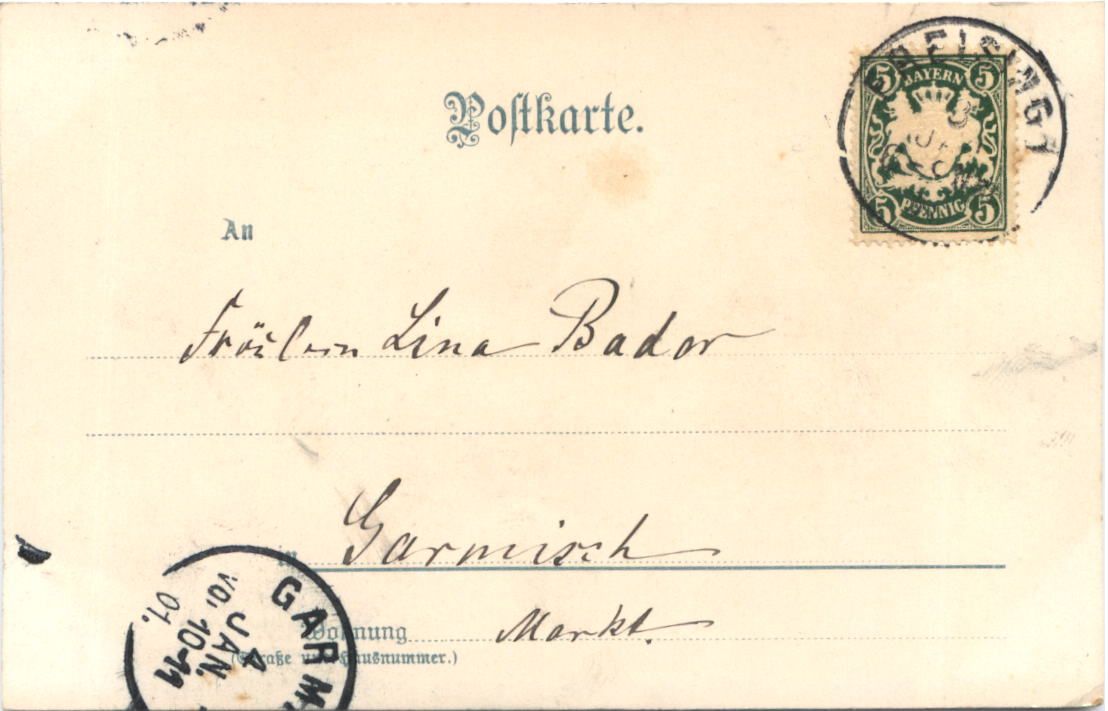 Postkarte.
FREISING 1
3
JAN
5 BAYERN 5
5 PFENNIG 5
An
Fräulein Lina Bador
in Garmisch
Wohnung Markt.
(Straße und Hausnummer.)
GARM
4
JAN.
VO. 10-11
01.